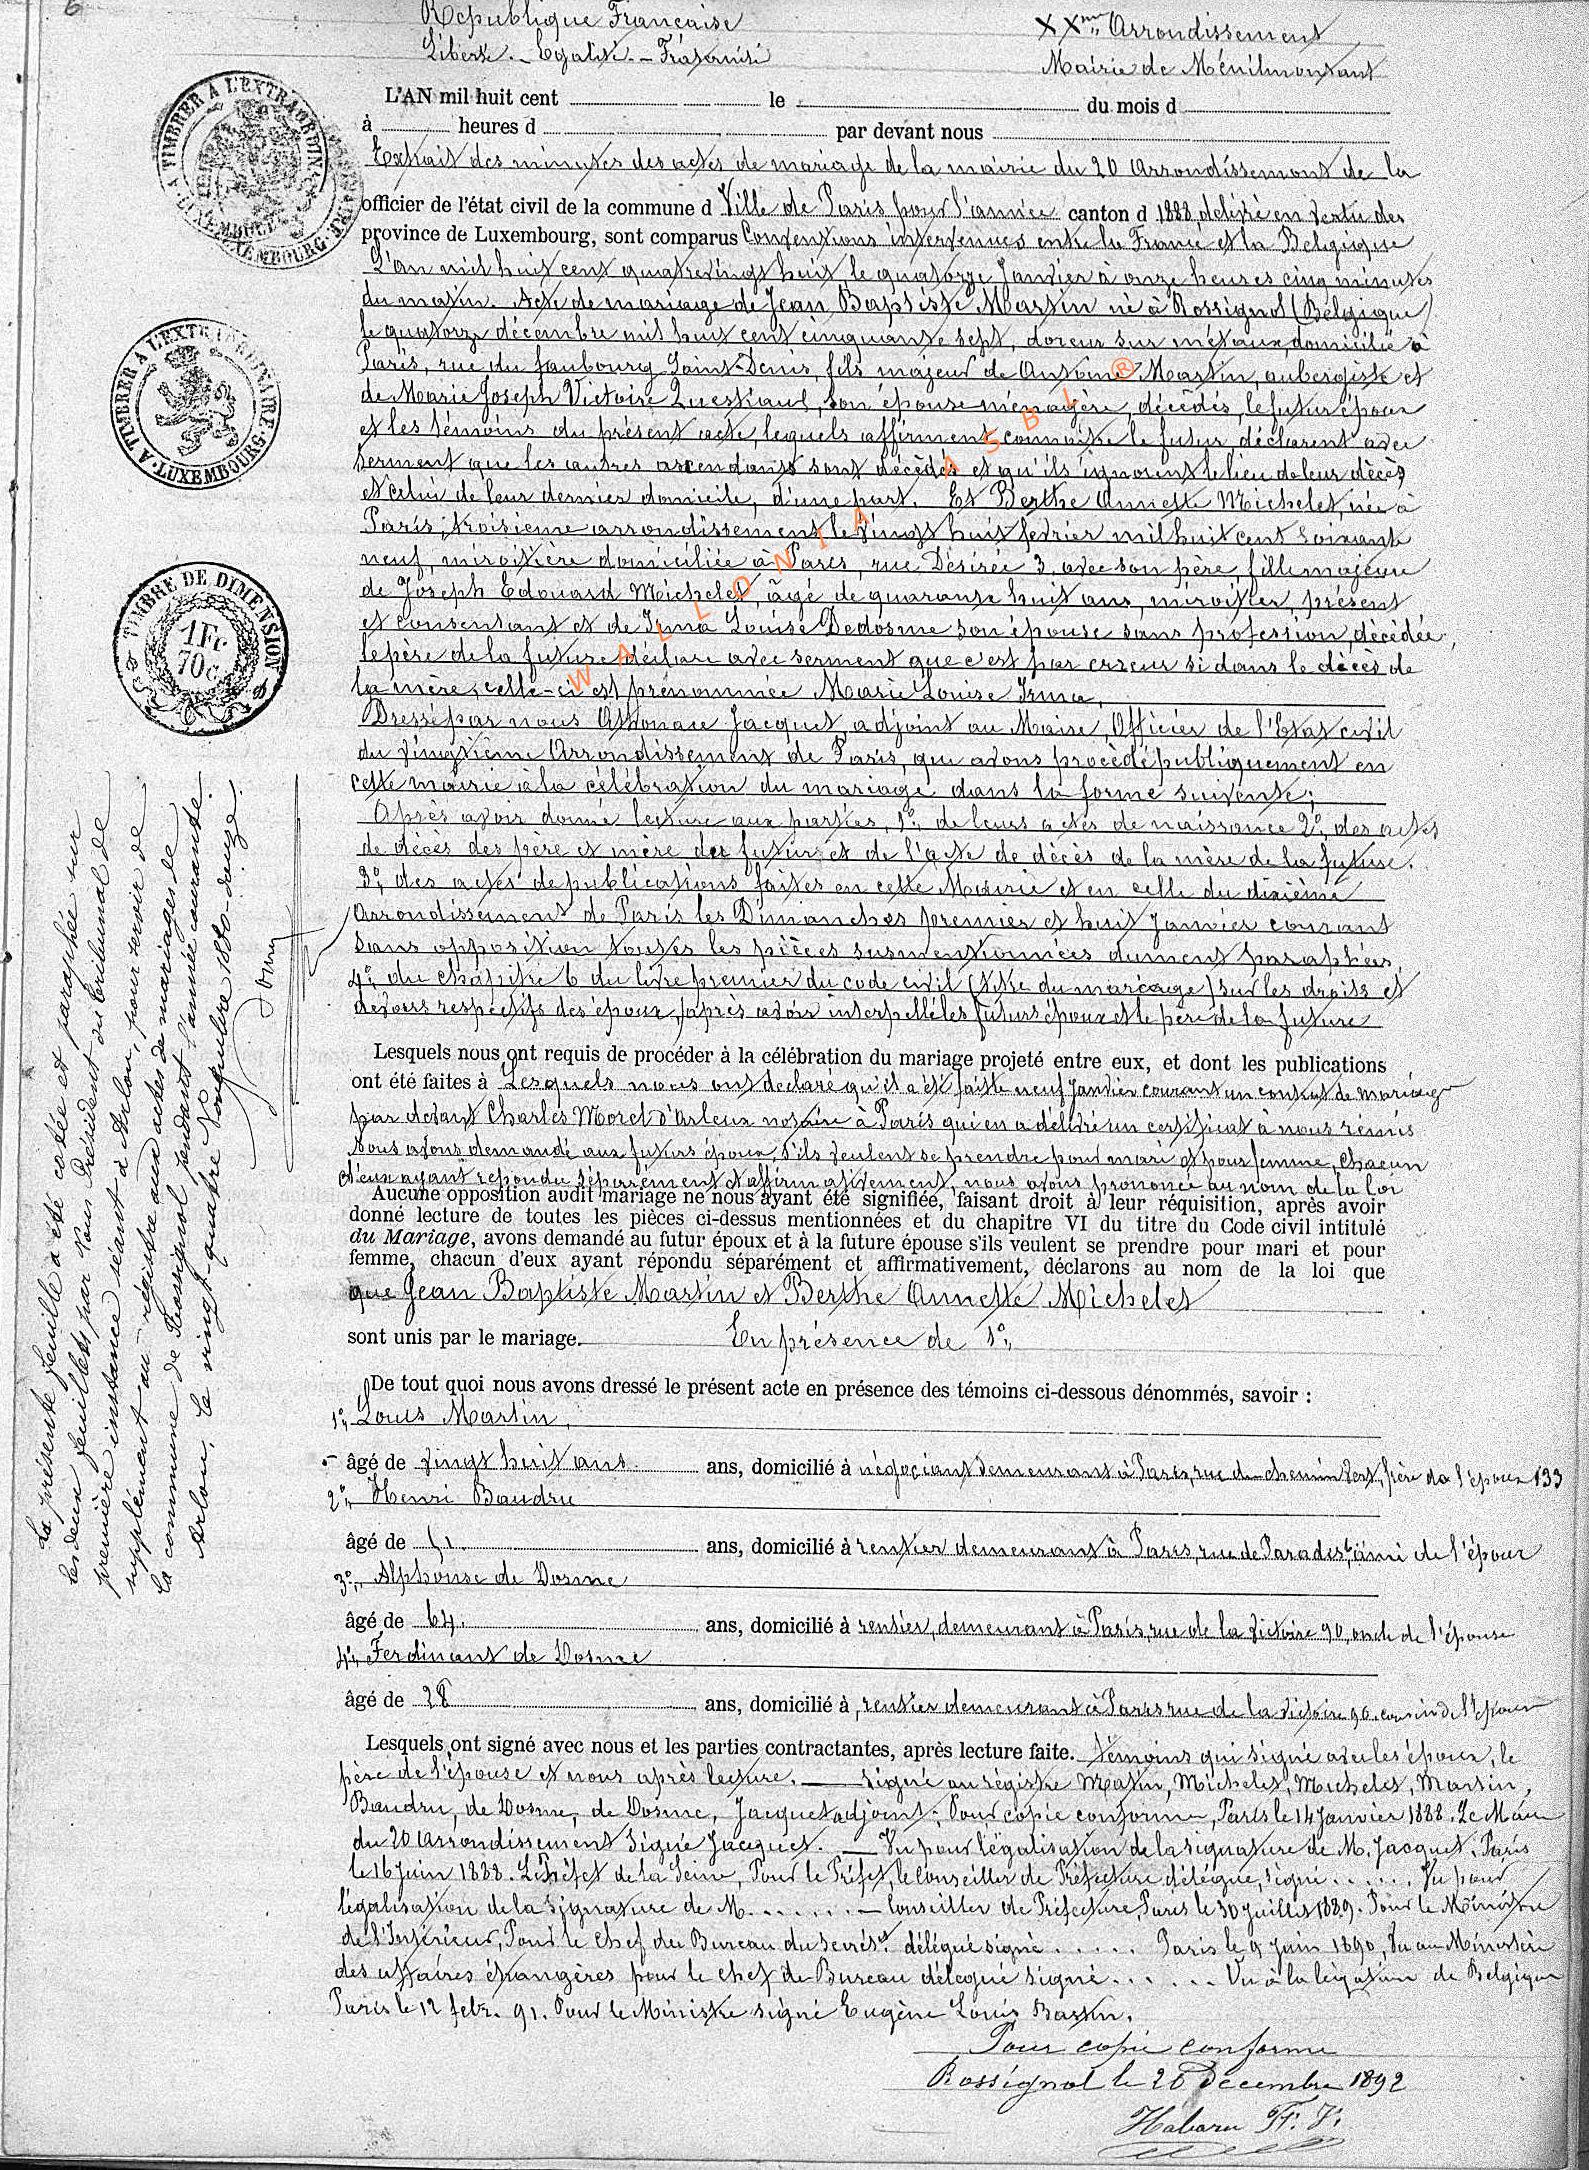 6
République Française
Liberté – Egalité – Fraternité
XXme Arrondissement
Mairie de Ménilmontant
A TIMBRER A L'EXTRAORDINAIRE
LUXEMBOURG
L'AN mil huit cent le du mois d
à heures d par devant nous
Extrait des minutes des actes de mariage de la mairie du 20 Arrondissement de la
officier de l'état civil de la commune d Ville de Paris pour l'année canton d 1888 délivré en vertu des
province de Luxembourg, sont comparus Conventions intervenues entre la France et la Belgique
L'an mil huit cent quatrevingt huit, le quatorze Janvier à onze heures cinq minutes
du matin. Acte de mariage de Jean Baptiste Martin né à Rossignol (Belgique)
le quatorze décembre mil huit cent cinquante sept, doreur sur métaux, domicilié à
Paris, rue du faubourg Saint-Denis, fils majeur de Antoine Martin, aubergiste et
de Marie Joseph Victoire Questiaux, son épouse ménagère, décédés, le futur époux
et les témoins du présent acte, lesquels affirment connaitre le futur déclarent avec
serment que les autres ascendants sont décédés et qu'ils ignorent le lieu de leur décès
et celui de leur dernier domicile, d'une part. Et Berthe Annette Michelet, née à
Paris, troisième arrondissement le vingt huit février mil huit cent soixante
neuf, miroitière domiciliée à Paris, rue Désirée 3, avec son père, fille majeure
de Joseph Edouard Michelet, âgé de quarante huit ans, miroitier, présent
et consentant et de Irma Louise Dedosme son épouse sans profession, décédée,
le père de la future déclare avec serment que c'est par erreur si dans le décès de
la mère, celle-ci est prénommée Marie Louise Irma.
Dressé par nous Athanase Jacquet, adjoint au Maire, Officier de l'Etat civil
du vingtième Arrondissement de Paris, qui avons procédé publiquement en
cette mairie à la célébration du mariage dans la forme suivante;
Après avoir donné lecture aux parties, 1° de leurs actes de naissance 2° des actes
de décès des père et mère du futur et de l'acte de décès de la mère de la future.
3° des actes de publications faites en cette Mairie et en celle du dixième
Arrondissement de Paris les Dimanches premier et huit Janvier courant
sans opposition toutes les pièces susmentionnées dument paraphées
4° du chapitre 6 du livre premier du code civil (titre du mariage) sur les droits et
devoirs respectifs des époux, après avoir interpellé les futurs époux et le père de la future
Lesquels nous ont requis de procéder à la célébration du mariage projeté entre eux, et dont les publications
ont été faites à Lesquels nous ont déclaré qu'il a été faite neuf Janvier courant un contrat de mariage
par devant Charles Morel d'Arleux notaire à Paris qui en a délivré un certificat à nous remis
Nous avons demandé aux futurs époux, s'ils veulent se prendre pour mari et pour femme, chacun
d'eux ayant répondu séparément et affirmativement, nous avons prononcé au nom de la loi
Aucune opposition audit mariage ne nous ayant été signifiée, faisant droit à leur réquisition, après avoir
donné lecture de toutes les pièces ci-dessus mentionnées et du chapitre VI du titre du Code civil intitulé
du Mariage, avons demandé au futur époux et à la future épouse s'ils veulent se prendre pour mari et pour
femme, chacun d'eux ayant répondu séparément et affirmativement, déclarons au nom de la loi que
que Jean Baptiste Martin et Berthe Annette Michelet
sont unis par le mariage. En présence de 1°
De tout quoi nous avons dressé le présent acte en présence des témoins ci-dessous dénommés, savoir :
1° Louis Martin,
âgé de vingt huit ans ans, domicilié à négociant demeurant à Paris, rue du chemin vert, frère de l'époux 133
2° Henri Baudru
âgé de 51 ans, domicilié à rentier demeurant à Paris, rue de Paradis, ami de l'époux
3° Alphonse de Dosme
âgé de 64 ans, domicilié à rentier, demeurant à Paris, rue de la victoire 90, oncle de l'épouse
4° Ferdinant de Dosme
âgé de 28 ans, domicilié à, rentier demeurant à Paris rue de la victoire 90. cousin de l'époux
Lesquels ont signé avec nous et les parties contractantes, après lecture faite. témoins qui signé avec les époux, le
père de l'épouse et nous après lecture. — Signé au régistre Matin, Michelet, Michelet, Martin,
Baudru, de Dosme, de Dosme, Jacquet adjoint; Pour copie conforme, Paris le 14 Janvier 1888. Le Maire
du 20 arrondissement signé Jacquet. — Vu pour légalisation de la signature de M. Jacquet. Paris
le 16 Juin 1888. Le Préfet de la Seine, Pour le Préfet, le Conseiller de Préfecture délégué, signé . . . . . Vu pour
légalisation de la signature de M. . . . . . . — Conseiller de Préfecture, Paris le 30 Juillet 1889. Pour le Ministre
de l'Intérieur, Pour le Chef du Bureau du Secrét. délégué signé . . . . . Paris le 9 Juin 1890, Vu au Ministère
des affaires étrangères pour le chef de Bureau délégué signé . . . . . . Vu à la légation de Belgique
Paris le 12 febr. 91. Pour le Ministre signé Eugène Louis Bastin.
Pour copie conforme
Rossignol le 26 Decembre 1892
Habaru Ft. J.
A TIMBRER A L'EXTRAORDINAIRE
LUXEMBOURG
TIMBRE DE DIMENSION
1Fc
70c
La présente feuille a été cotée et paraphée sur
les deux feuillets par Nous Président du tribunal de
première instance séant à Arlon, pour servir de
supplément au régistre aux actes de mariages de
la commune de Rossignol pendant l'année courante.
Arlon, le vingt-quatre Novembre 1880-douze.
WALLONIA ASBL ®